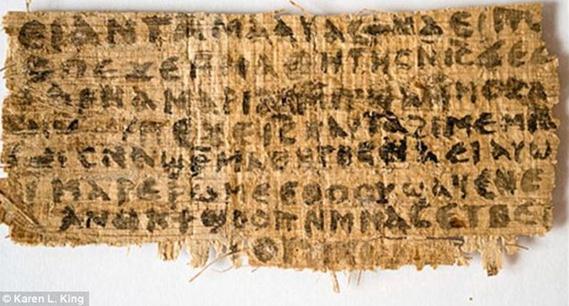 ⲉⲓⲁⲛⲧⲁⲙⲁⲁⲩⲁⲥϯⲛⲁⲉⲓⲡ
ⲥⲡⲉϫⲉⲙⲙⲁⲑⲏⲧⲏⲥⲛⲓⲥϫⲉⲥ
ⲁⲣⲛⲁⲙⲁⲣⲓⲁⲙⲙⲡϣⲁⲙⲙⲟⲥⲁ
ⲡⲉϫⲉⲓⲥⲛⲁⲩⲧⲁϩⲓⲙⲉⲙⲛ
ⲥⲛⲁϣⲣⲙⲁⲑⲏⲧⲏⲥⲛⲁⲉⲓⲁⲩⲱ
ⲓⲙⲁⲣⲉⲣⲱⲙⲉⲉⲑⲟⲟⲩϣⲁϥⲉⲛⲉ
ⲁⲛⲟⲕϯϣⲟⲟⲡⲛⲙⲙⲁⲥⲉⲧⲃⲉ
© Karen L. King